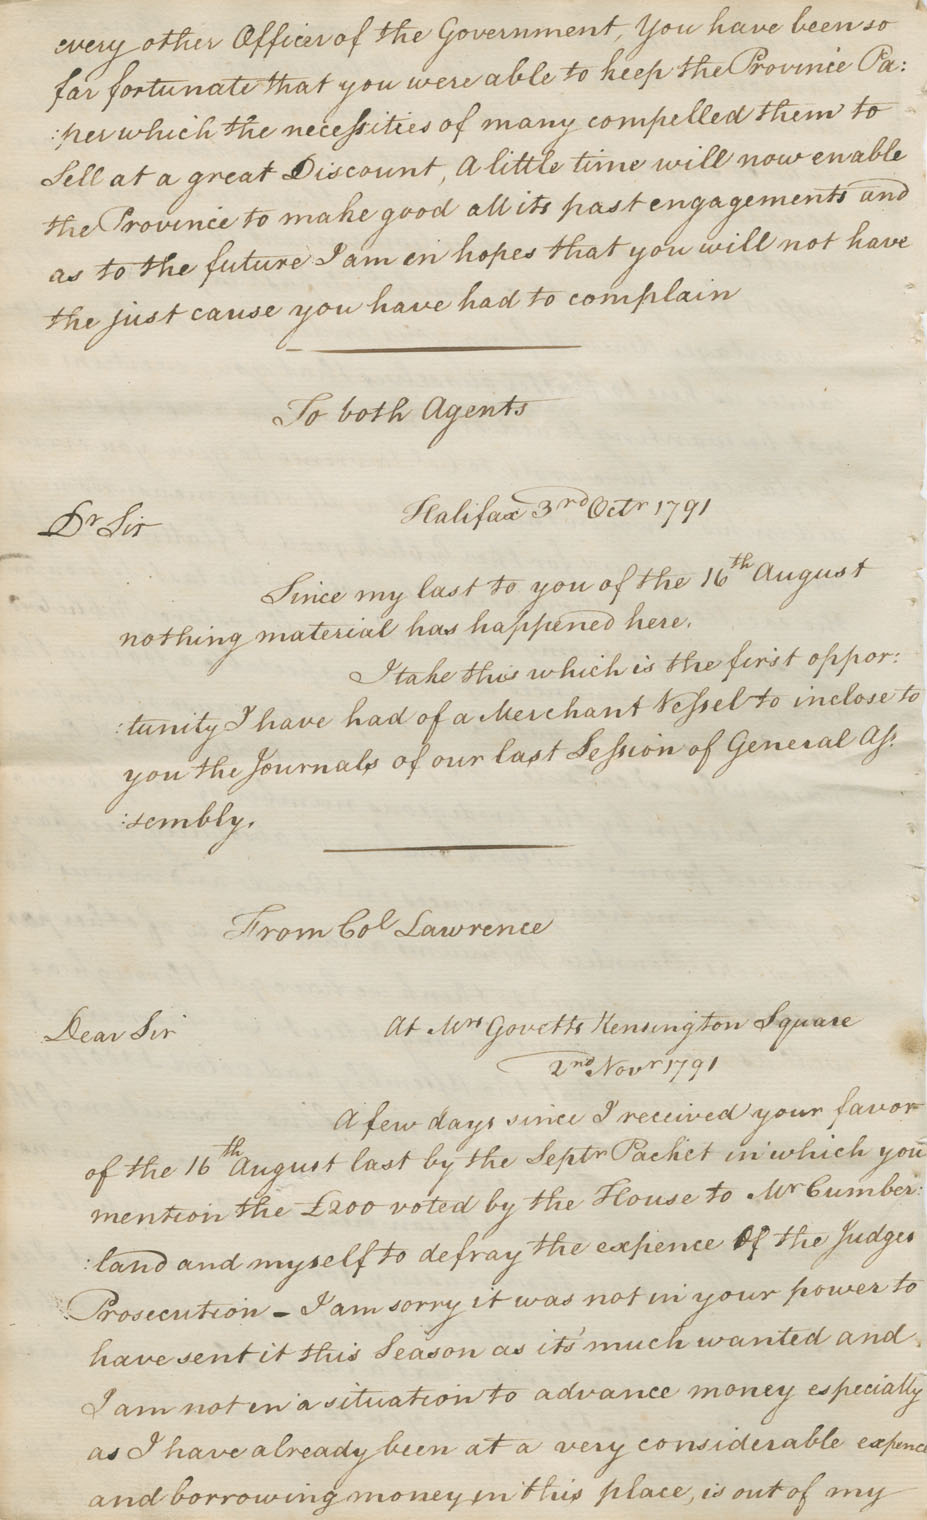 every other Officer of the Government, You have been so
far fortunate that you were able to keep the Province Pa:
:per which the necessities of many compelled them to
Sell at a great Discount, A little time will now enable
the Province to make good all its past engagements and
as to the future I am in hopes that you will not have
the just cause you have had to complain
To both Agents
Halifax 3rd Octr 1791
Dr Sir
Since my last to you of the 16th August
nothing material has happened here.
I take this which is the first oppor:
:tunity I have had of a Merchant Vessel to inclose to
you the Journals of our last Session of General As:
:sembly.
From Col Lawrence
Dear Sir
At Mrs Govetts Kensington Square
2nd Novr 1791
A few days since I received your favor
of the 16th August last by the Septr Packet in which you
mention the £200 voted by the House to Mr Cumber:
:land and myself to defray the expence Of the Judges
Prosecution - I am sorry it was not in your power to
have sent it this Season as it's much wanted and
I am not in a situation to advance money especially
as I have already been at a very considerable expence
and borrowing money in this place, is out of my